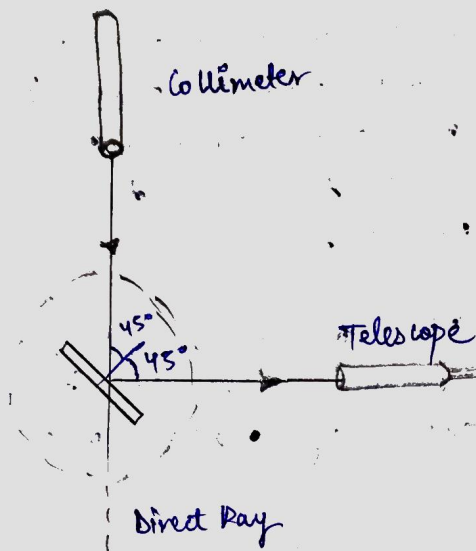 Collimeter
45°
45°
Telescope
Direct Ray